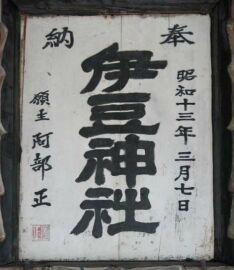 奉納
昭和十三年三月七日
伊豆神社
願主 阿部正